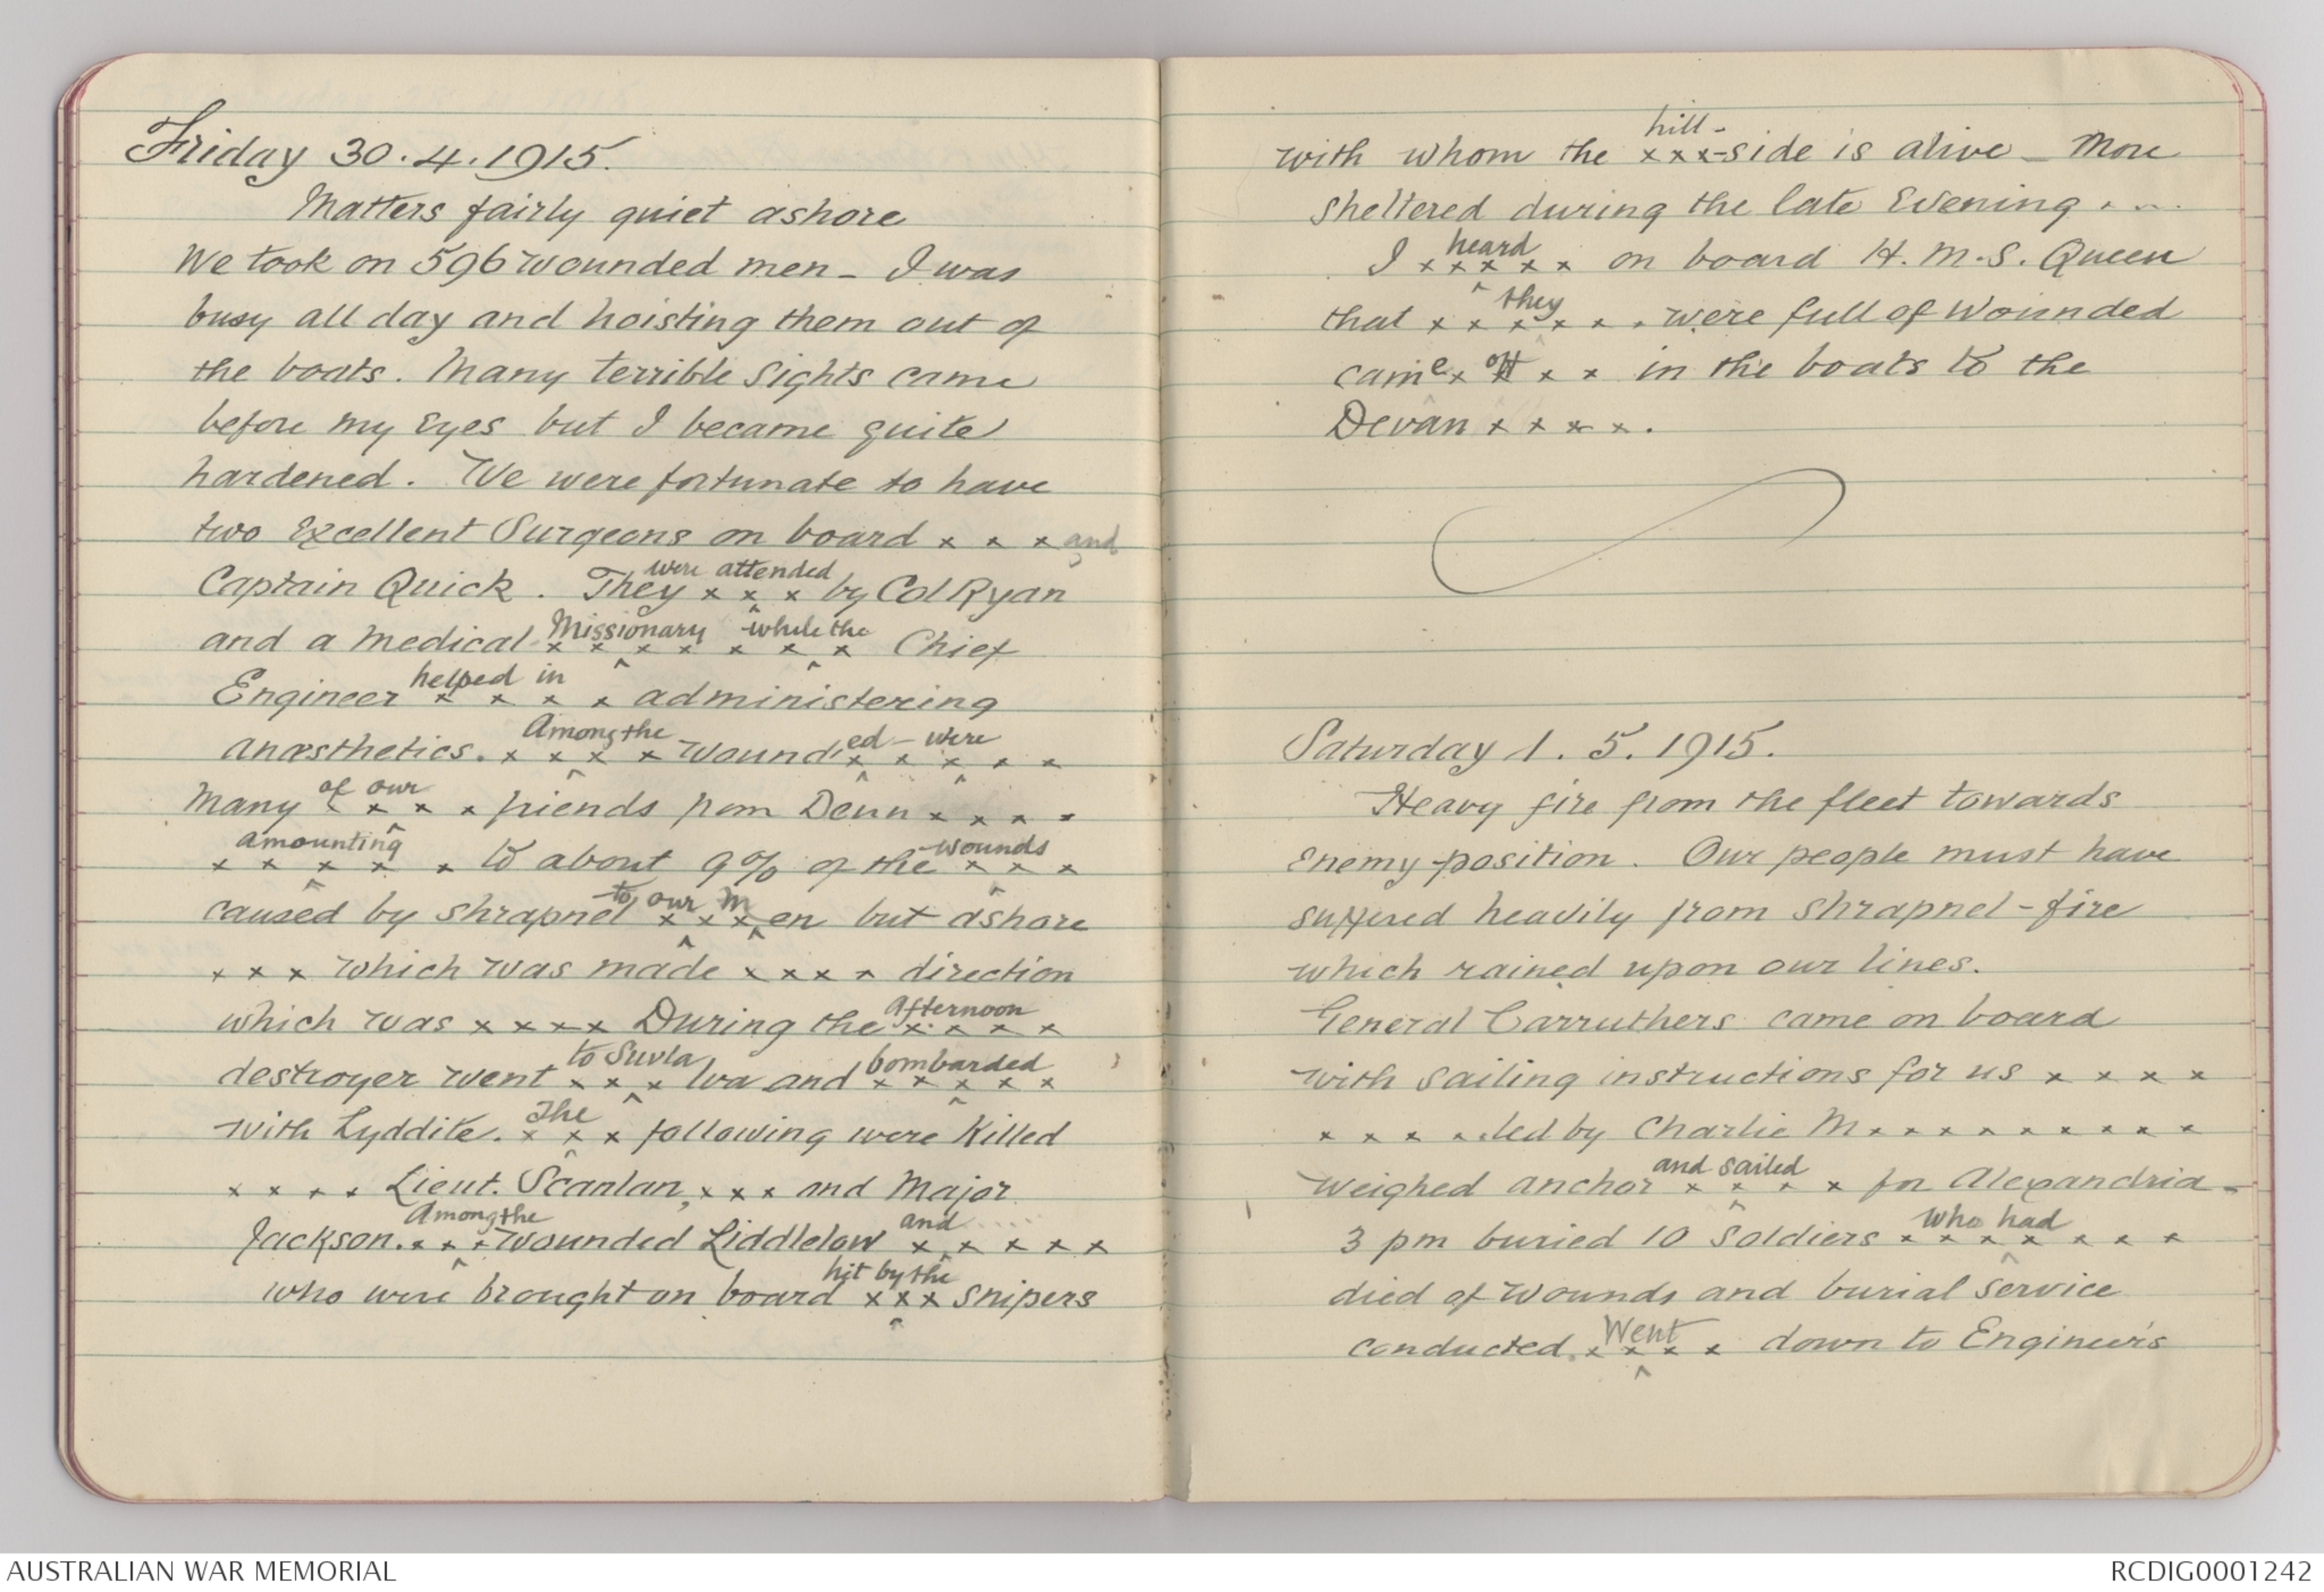 Friday 30.4.1915.
Matters fairly quiet ashore
We took on 596 wounded men - I was
busy all day and hoisting them out of
the boats. Many terrible sights came
before my Eyes but I became quite
hardened. We were fortunate to have
two Excellent Surgeons on board x x x and
were attended
Captain Quick. They x x x by Col Ryan
Missionary while the
and a medical x x x x x x x Chief
helped in
Engineer x x x x administering
Among the ed - were
anæsthetics. x x x x wound x x x x x
of our
Many x x x x friends from Denn x x x x
amounting wounds
x x x x x x to about 9% of the x x x
to our M
caused by shrapnel x x x en but ashore
x x x which was made x x x x direction
afternoon
which was x x x x During the x x x x
to Suvla bombarded
destroyer went x x x lva and x x x x x
The
with Lyddite. x x x following were Killed
x x x x Lieut. Scanlan, x x x and Major
Among the and
Jackson. x x x wounded Liddlelow x x x x x
hit by the
who were brought on board x x x snipers
hill -
with whom the x x x - side is alive - More
sheltered during the late Evening . . . .
heard
I x x x x x on board H.M.S. Queen
they
that x x x x x . were full of Wounded
off
came x x x x in the boats to the
Devan x x x x .
Saturday 1. 5. 1915.
Heavy fire from the fleet towards
Enemy-position. Our people must have
suffered heavily from shrapnel-fire
which rained upon our lines.
General Carruthers came on board
with sailing instructions for us x x x x
x x x x . led by Charlie M x x x x x x x x x
and sailed
weighed anchor x x x x for Alexandria -
who had
3 pm buried 10 Soldiers x x x x x x x
died of Wounds and burial service
Went
conducted. x x x x down to Engineer's
AUSTRALIAN WAR MEMORIAL
RCDIG0001242